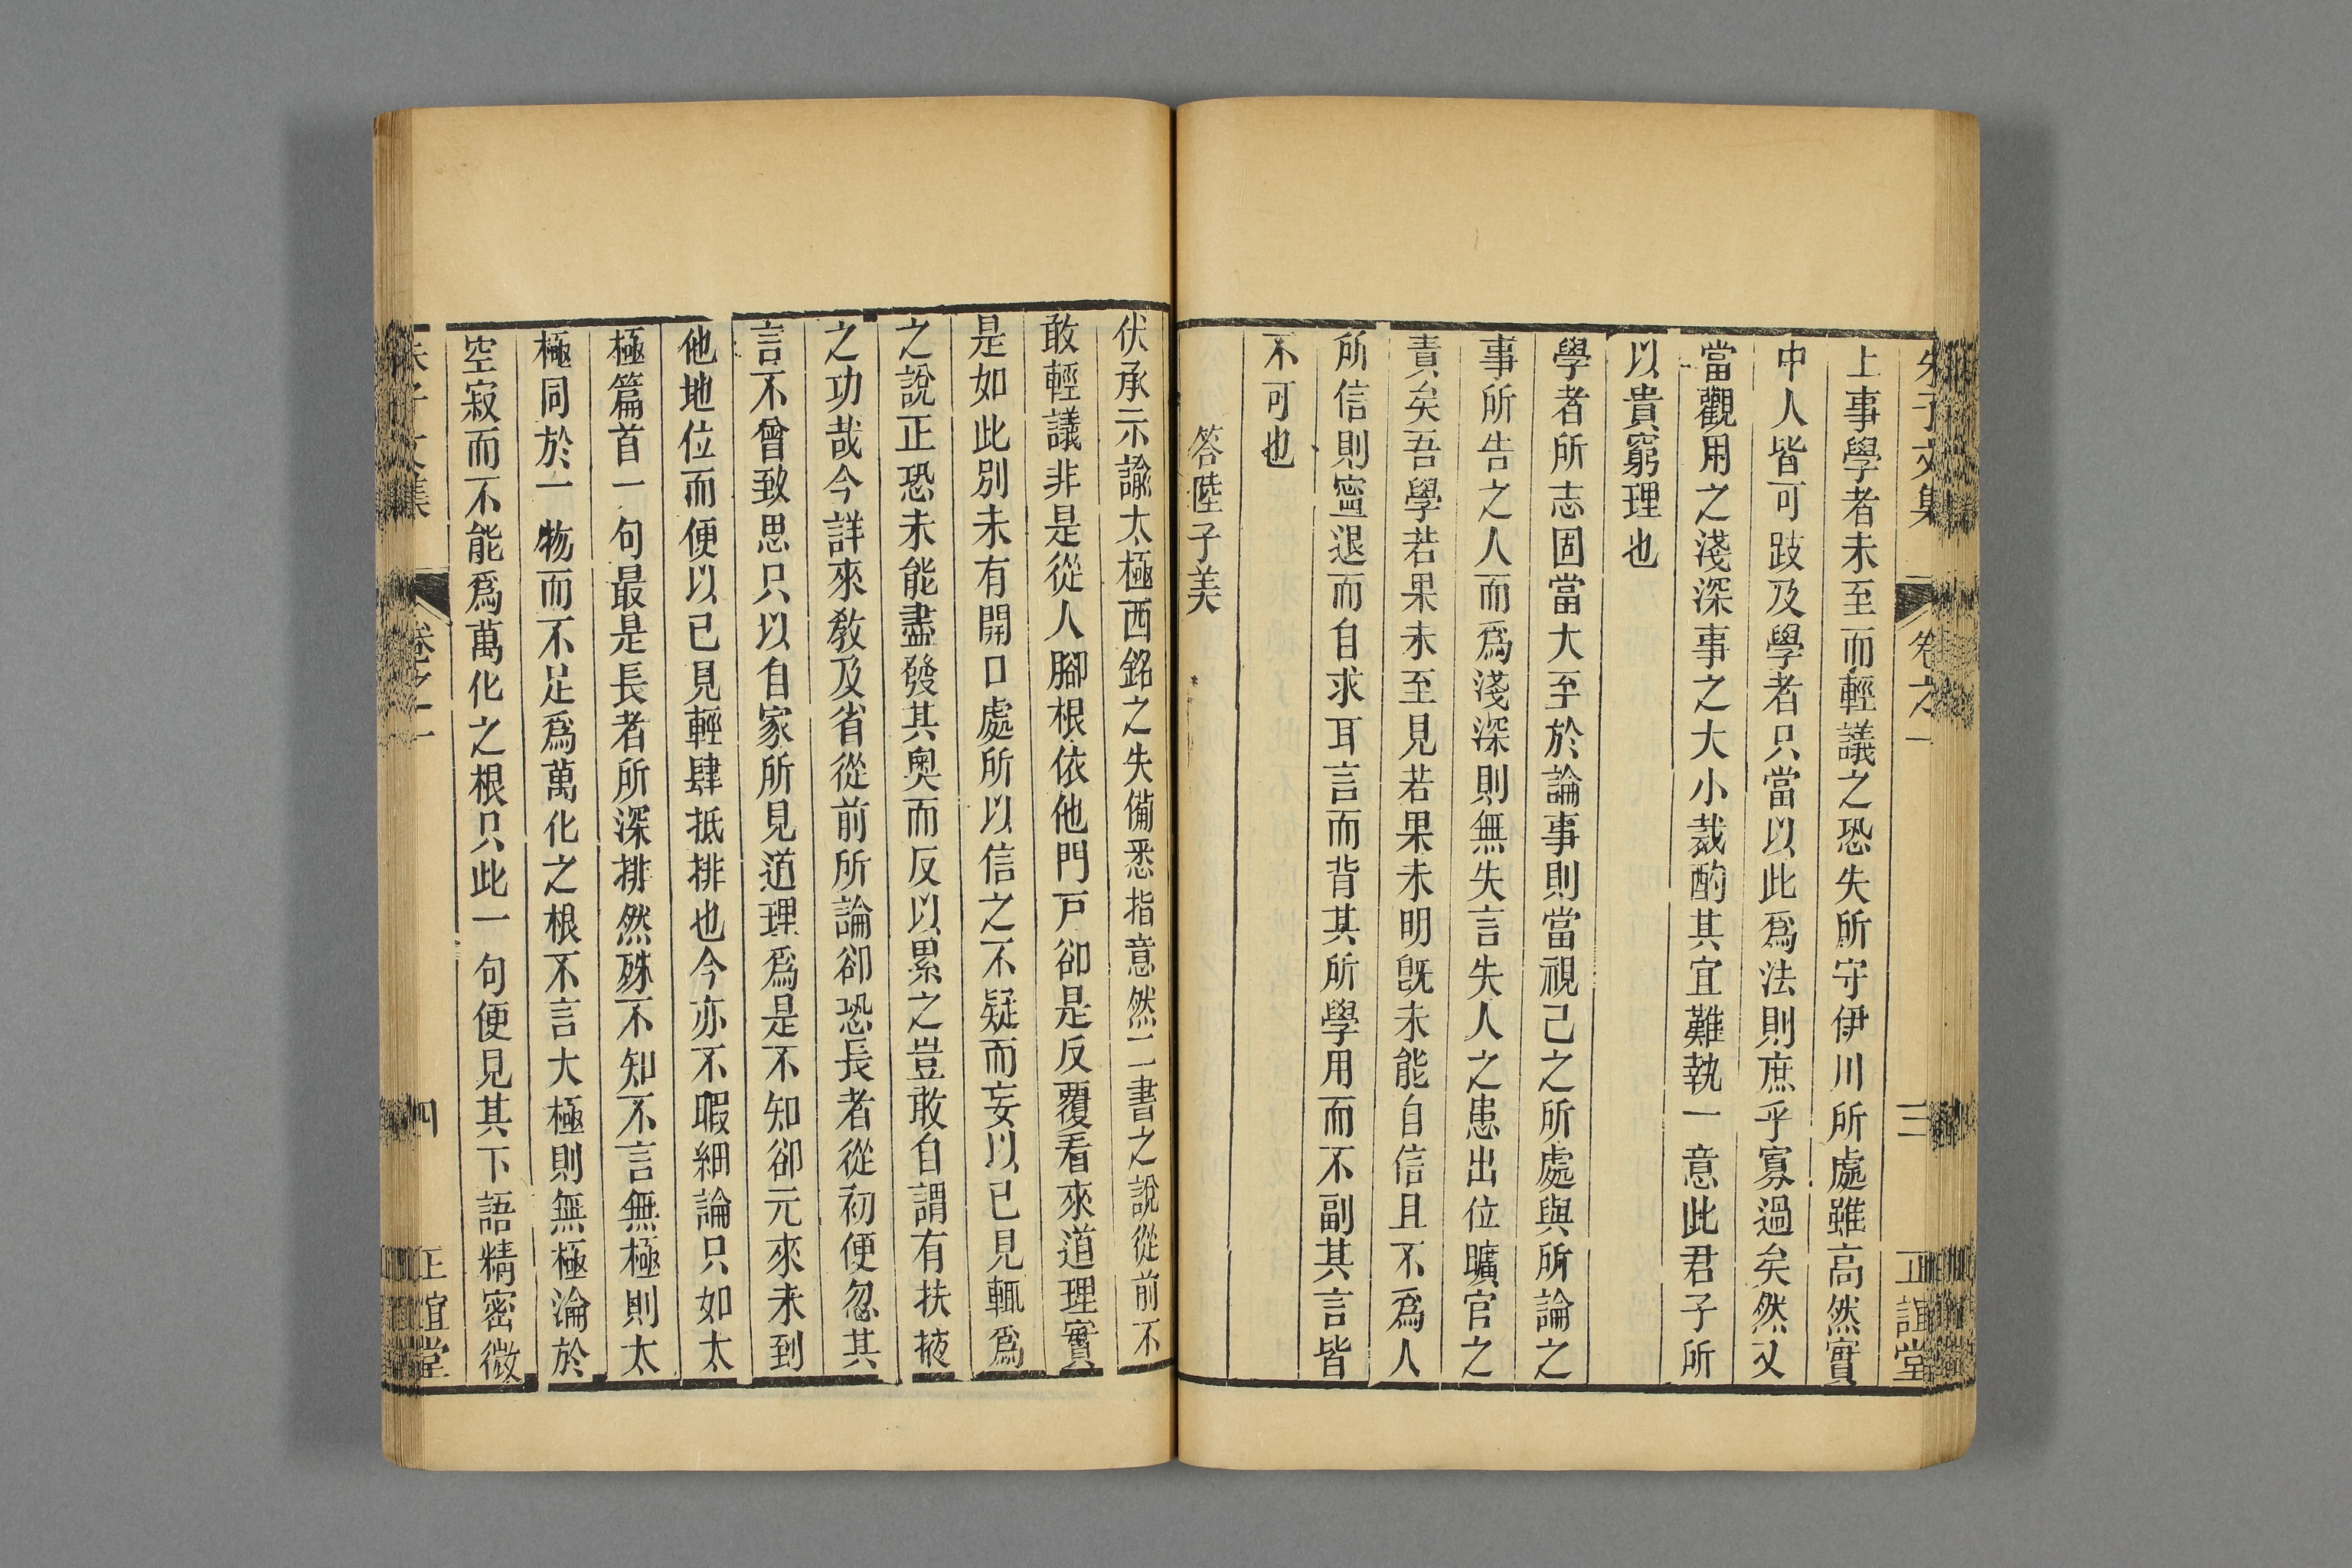 朱子文集 卷之一 三 正誼堂
上事學者未至而輕議之恐失所守伊川所處雖高然實
中人皆可跂及學者只當以此爲法則庶乎寡過矣然又
當觀用之淺深事之大小裁酌其宜難執一意此君子所
以貴窮理也
學者所志固當大至於論事則當視己之所處與所論之
事所告之人而爲淺深則無失言失人之患出位曠官之
責矣吾學若果未至見若果未明旣未能自信且不爲人
所信則寍退而自求耳言而背其所學用而不副其言皆
不可也
答陸子美
伏承示諭太極西銘之失備悉指意然二書之說從前不
敢輕議非是從人腳根依他門戸卻是反覆看來道理實
是如此別未有開口處所以信之不疑而妄以己見輒爲
之說正恐未能盡發其奥而反以累之豈敢自謂有扶掖
之功哉今詳來敎及省從前所論卻恐長者從初便忽其
言不曾致思只以自家所見道理爲是不知卻元來未到
他地位而便以己見輕肆抵排也今亦不暇細論只如太
極篇首一句最是長者所深排然殊不知不言無極則太
極同於一物而不足爲萬化之根不言太極則無極淪於
空寂而不能爲萬化之根只此一句便見其下語精密微
朱子文集 卷之一 四 正誼堂